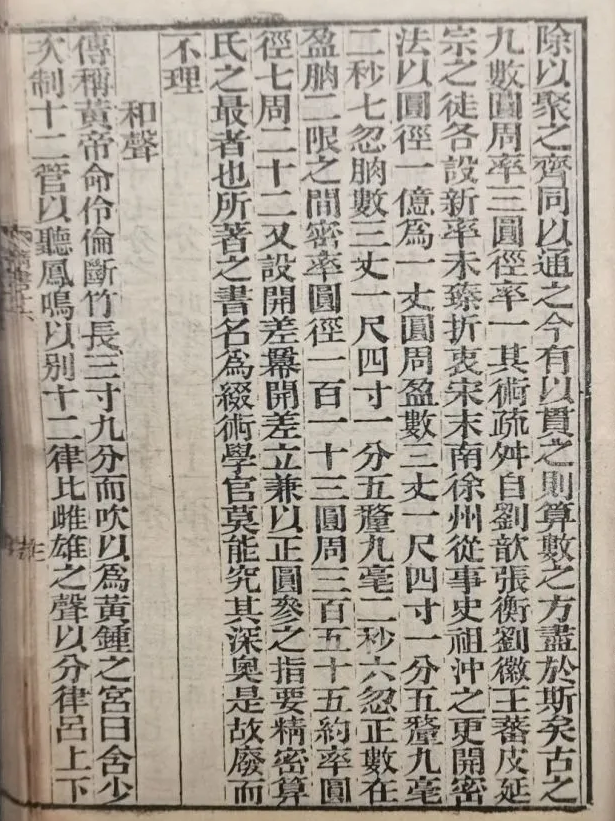 除以聚之齊同以通之今有以貫之則算數之方盡於斯矣古之
九數圓周率三圓徑率一其術疏舛自劉歆張衡劉徽王蕃皮延
宗之徒各設新率未臻折衷宋末南徐州從事史祖沖之更開密
法以圓徑一億爲一丈圓周盈數三丈一尺四寸一分五釐九毫
二秒七忽朒數三丈一尺四寸一分五釐九毫二秒六忽正數在
盈朒二限之間密率圓徑一百一十三圓周三百五十五約率圓
徑七周二十二又設開差冪開差立兼以正圓參之指要精密算
氏之最者也所著之書名爲綴術學官莫能究其深奥是故廢而
不理
和聲
傳稱黃帝命伶倫斷竹長三寸九分而吹以爲黃鍾之宮曰含少
次制十二管以聽鳳鳴以別十二律比雌雄之聲以分律呂上下